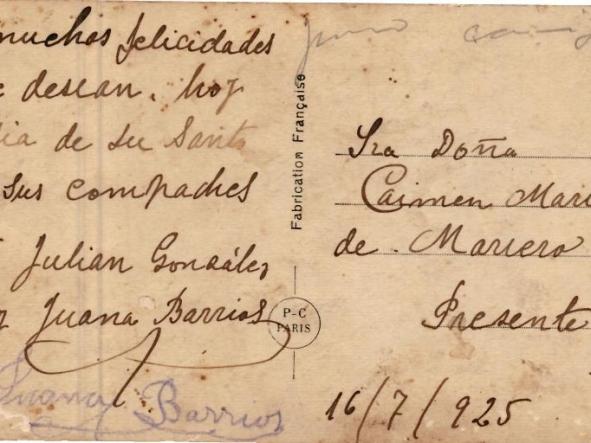 muchas felicidades
desean, hoy
dia de su Santo
sus compadres
Julian González
y Juana Barrios
Juana Barrios
Fabrication Française
P-C
PARIS
Sra Doña
Carmen
de Marrero
Presente
16/7/925